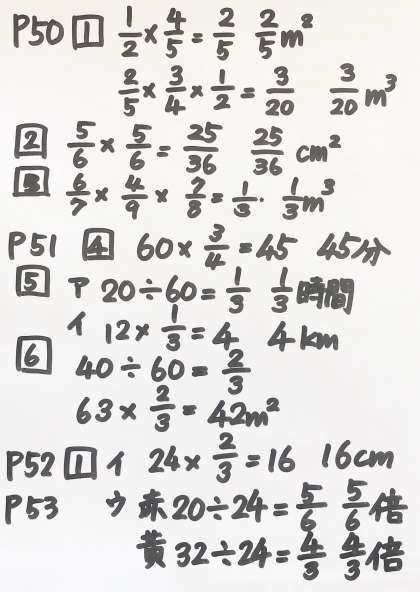 P50 1 1/2 × 4/5 = 2/5 2/5 m²
2/5 × 3/4 × 1/2 = 3/20 3/20 m³
2 5/6 × 5/6 = 25/36 25/36 cm²
3 6/7 × 4/9 × 7/8 = 1/3 . 1/3 m³
P51 4 60 × 3/4 = 45 45分
5 ア 20 ÷ 60 = 1/3 1/3 時間
イ 12 × 1/3 = 4 4 km
6 40 ÷ 60 = 2/3
63 × 2/3 = 42m²
P52 1 イ 24 × 2/3 = 16 16cm
P53 ウ 赤 20 ÷ 24 = 5/6 5/6 倍
黄 32 ÷ 24 = 4/3 4/3 倍